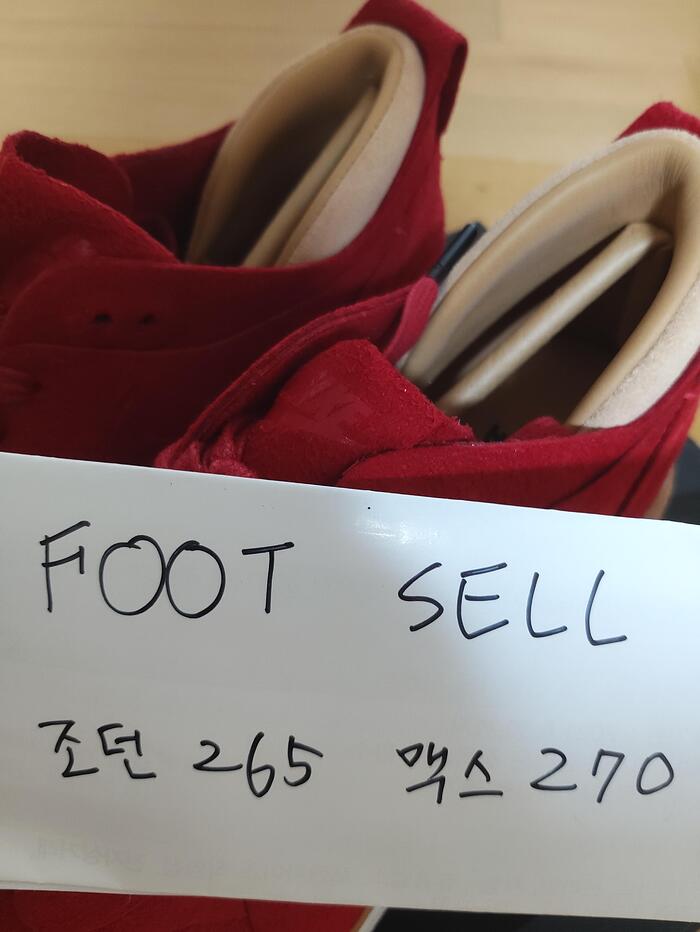 FOOT SELL
조던 265 맥스 270